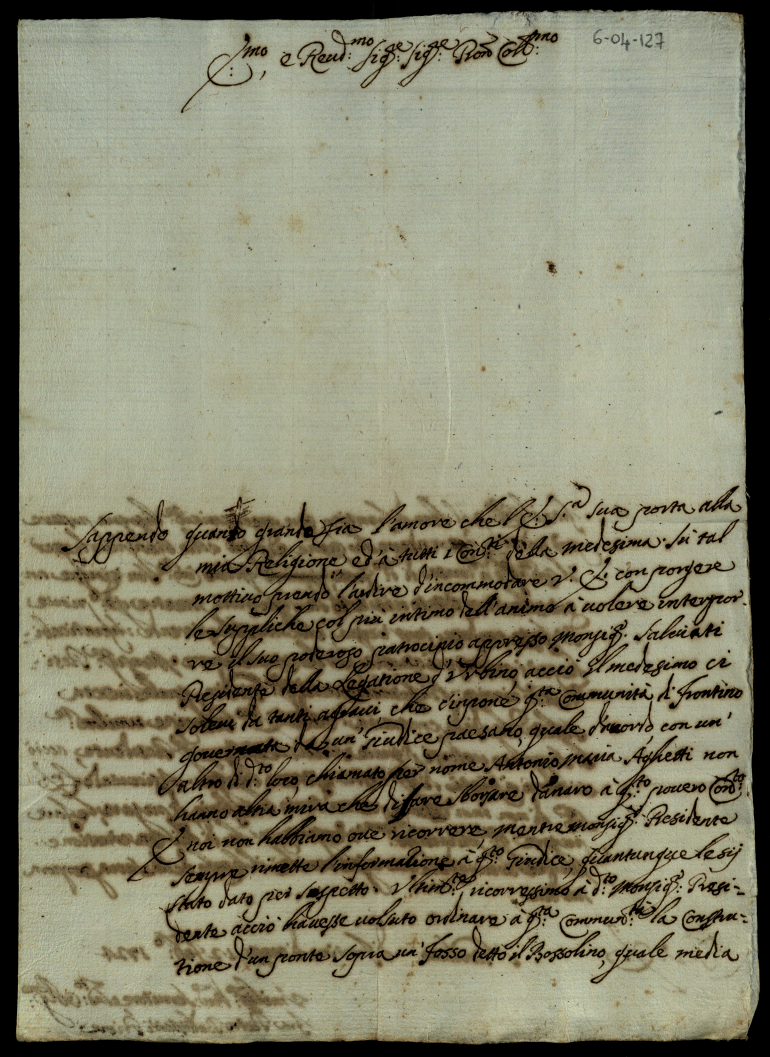 6-04-127
Ill:mo, e Reud:mo Sig:re Sig:re Pron Coll:mo
Sappendo quanto grande sia l'amore che V. S. Ill.a sua porta alla
mia Religione, ed à tutti i Con:ti della medesima. Sù tal
mottiuo prendo l'ardire d'incommodare V. S. con porgere
le suppliche col più intimo dell'animo à uolere interpor-
re il suo poderoso patrocinio appresso Monsig:r Saluiati
Presidente della Legatione d'Vrbino, acciò il medesimo ci
soleui da tanti aggraui che c'inpone q:ta Communità di Frontino
gouernata da un' Giudice paesano, quale d'accordo con un'
altro di d:to loco, chiamato per nome Antonio Maria Aghetti non
hanno altra mira che di fare sborsare danaro à q:to pouero Con:to
E noi non habbiamo oue ricorrere, mentre Monsig:r Residente
sempre rimette l'informatione à q:to Giudice, quantunque le sij
stato dato per suspetto. Vltim:te ricorressimo à d:to Monsig:r Presi-
dente acciò hauesse uolsuto ordinare à q:ta Commun:tà la constru-
tione d'un ponte sopra un' fosso detto il Bossolino, quale media